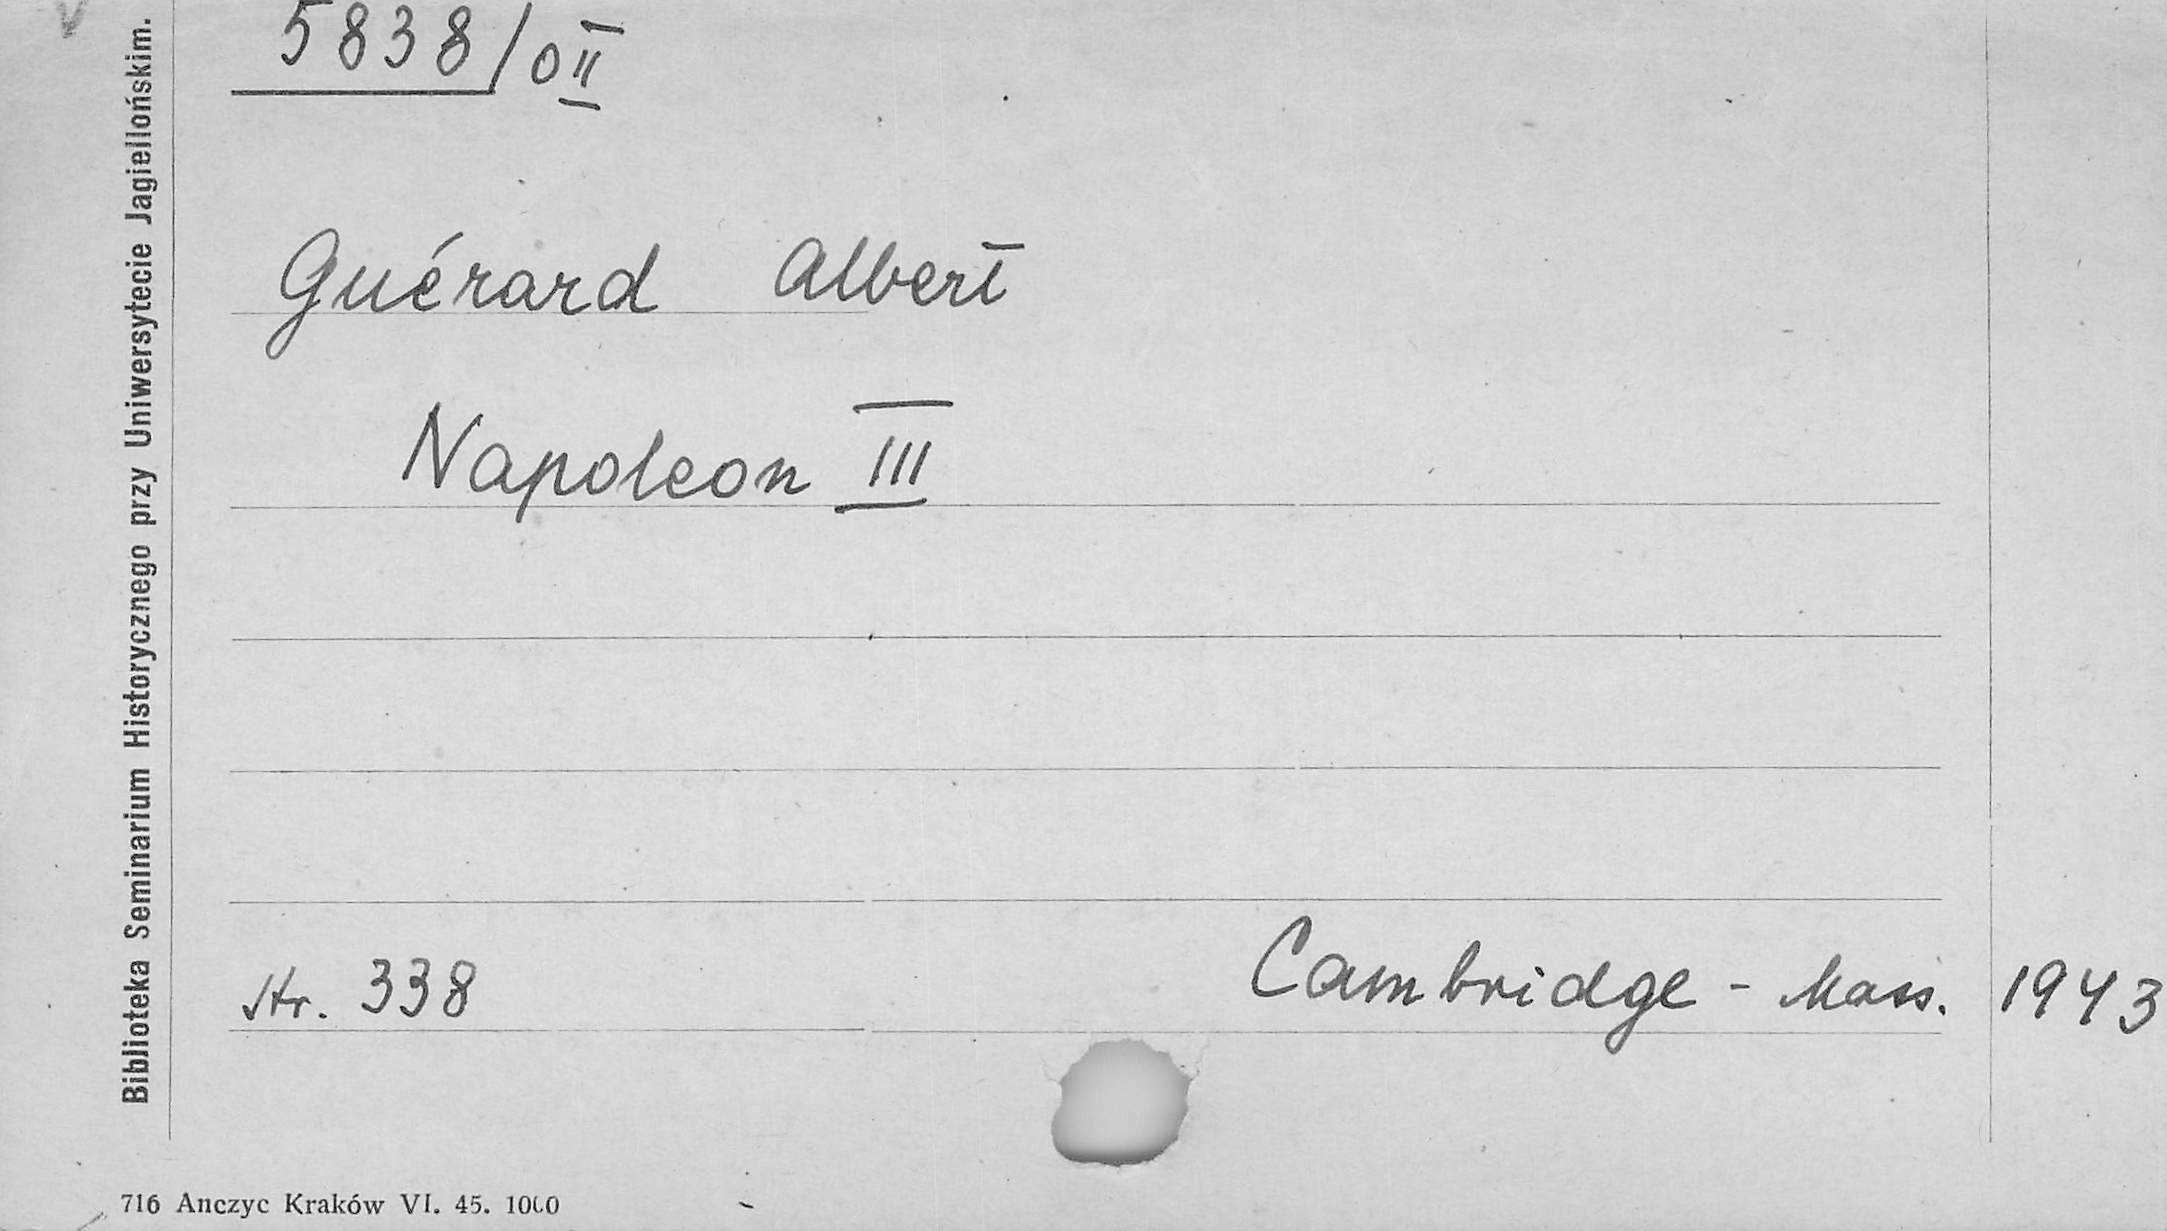 5838/0II
Guérard Albert
Napoleon III
str. 338 Cambridge - Mass. 1943
Biblioteka Seminarium Historycznego przy Uniwersytecie Jagiellońskim.
716 Anczyc Kraków VI. 45. 1000